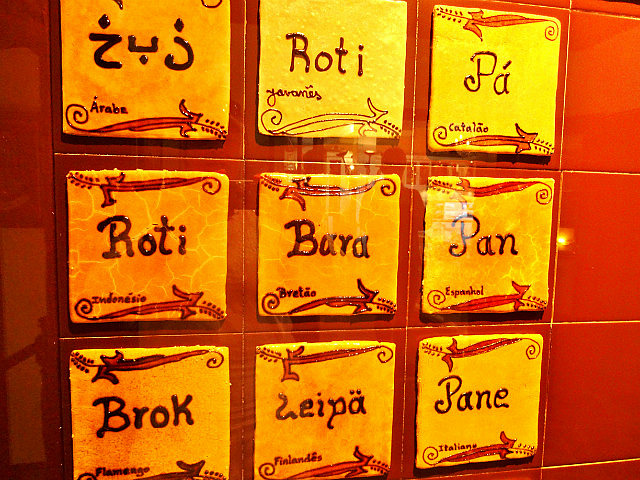 زبخ
Árabe
Roti
Javanês
Pá
Catalão
Roti
Indonésio
Bara
Bretão
Pan
Espanhol
Brok
Flamengo
Leipä
Finlandês
Pane
Italiano